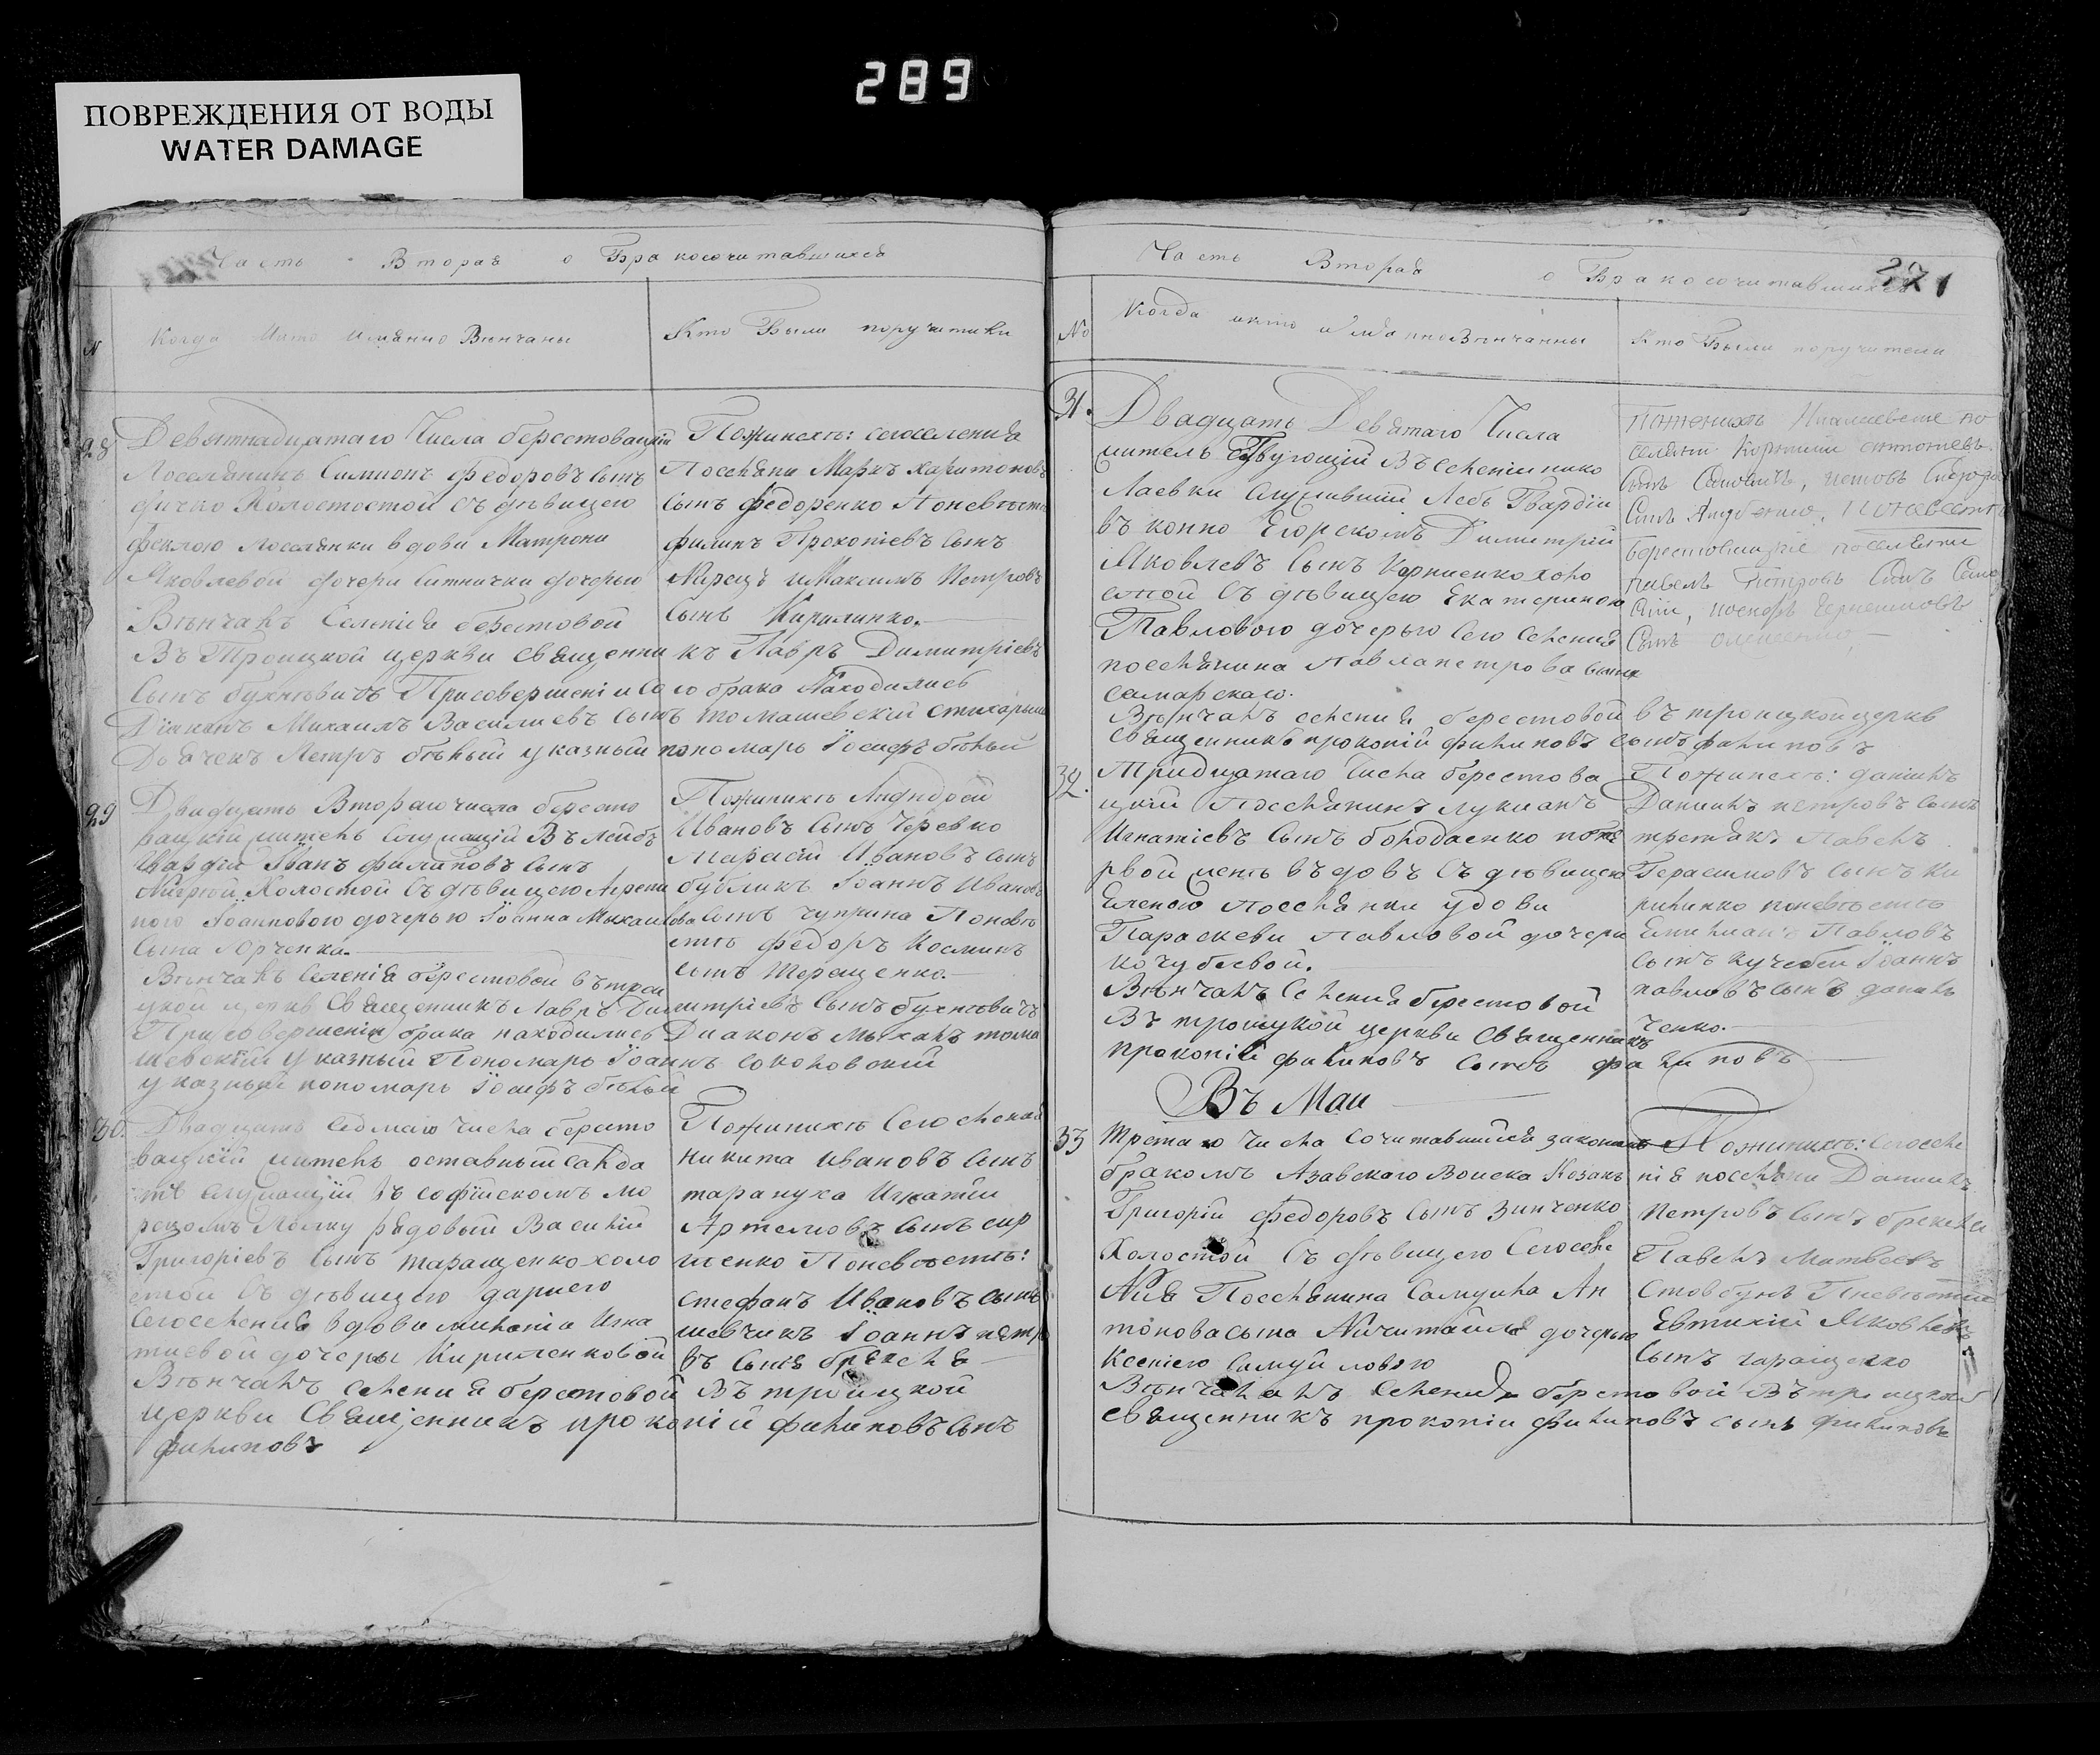 289
ПОВРЕЖДЕНИЯ ОТ ВОДЫ
WATER DAMAGE
Часть Вторая о Бракосочитавшихся
N
Когда Икто имянно Винчаны
Кто Были поручители
28
Девятнадцатаго Числа берестовацкій
Поселянинъ Симионъ федоровъ сынъ
Холостой съ дѣвицею
феклою поселянки вдови Матрони
Яковлевой дочери Ситнички дочерью
Вѣнчалъ Селенія берестовой
Въ Троицкой церкви священникъ Лавръ Димитріевъ
Сынъ При совершеніи Сего брака Находились
Діяконъ Михаилъ Василиевъ сынъ томашевскій
Дьячекъ Петръ бѣлый указный пономарь Іосифъ бѣлый
Пожинихѣ: сегоселения
Поселяни Маркъ харитоновъ
сынъ федоренко Поневѣсти
филипъ Прокопіевъ сынъ
и Максимъ Петровъ
сынъ Кирилинко.
29
Двадцать Втораго числа бересто
вацкій житель Служащій Въ Лейбъ
Гвардіи Іванъ филиповъ сынъ
Холостой Съ дѣвицею Агрепи
ною Іоанновою дочерью Іоанна Михаилова
Сына Юрченка.
Вѣнчалъ Селенія берестовой втрои
цкой церкве Священникъ Лавръ Димитріевъ Сынъ
При совершеніи брака находились Диаконъ Михаилъ тома
шевскій указный Пономарь Іоаннъ соколовский
указный пономарь Іосифъ бѣлый
Пожинихѣ Андрей
Ивановъ Сынъ Черевко
Ивановъ сынъ
бубликъ Іоаннъ Ивановъ
сынъ чуприна Поневѣ
стѣ федоръ Косминъ
сынъ Терещенко.
30.
Двадцать Седмаго числа бересто
вацкій житель оставный салда
тъ Служащій въ софійскомъ мо
рскомъ Полку рядовый Василій
Григоріевъ Сынъ таращенко холо
стой Съ дѣвицею дариею
Сегоселения вдови Игна
тиевой дочеры Кириленковой
Вѣнчалъ селения берестовой Въ троицкой
церкви Священникъ прокопій филиповъ Сынъ
филиповъ
Пожинихѣ Сегоселения
Никита Ивановъ Сынъ
тарануха Игнатій
Артемовъ Сынъ сир
тенко Поневѣстѣ:
стефанъ Ивановъ сынъ
шевчикъ Іоаннъ петро
въ Сынъ брекеля
Часть Вторая о Бракосочитавшихся
271
No
Когда икто имяноВѣнчанны
Кто Были поручители
31.
Двадцать Девятаго Числа
житель Въселеніи нико
лаевки Служивший Лебъ Гвардіи
въ конно Егорскомъ Димитрій
Яковлевъ Сынъ Корниенко холо
стой съ дѣвицею Екатериною
Павловою дочерью Сего Селения
поселянина Павла петрова сына
самарскаго.
Вѣнчалъ селения берестовой въ троицкой церкв
священникъ прокопій филиповъ сынъ филиповъ
Поженихѣ Николаевские по
селяни Корнилий антониевъ
Поневестѣ
Берестовацкіе поселяни
павелъ Петровъ Сынъ
32.
Тридцатаго Числа берестова
цкій Поселянинъ лукианъ
Игнатіевъ Сынъ бородаенко попе
рвой женѣ вдовъ Съ дѣвицею
Еленою поселянки удови
Параскеви Павловой дочери
кочубеевой.
Вѣнчалъ Селения берестовой
Въ троицкой церкви Священникъ
прокопій филиповъ Сынъ филиповъ
Пожинихѣ: данилъ
Данилъ петровъ сынъ
третякъ Павелъ
Герасимовъ сынъ Ки
рилинко поневѣстѣ
Емилианъ Павловъ
сынъ кучебей Іоаннъ
павловъ сынъ данил
ченко.
Въ Маи
33
Третаго числа Сочитавшийся законымъ
бракомъ Азавскаго Воиска Козакъ
Григорій Федоровъ Сынъ Зинченко
Холостой Съ дѣвицею Сегоселе
нія Поселянина Самуила Ан
тоновасына Ничитайля дочерью
Ксениею Самуиловою
Вѣнчалъ Селения берестовой Въ троицкой
священникъ прокопіи филиповъ сынъ филиповъ
Пожинихѣ: Сегоселе
нія поселяни Данилъ
Петровъ Сынъ брекеля
Павелъ Матвеевъ
Стовбунъ Поневѣстѣ
Евтихій Яковлевъ
Сынъ таращенко